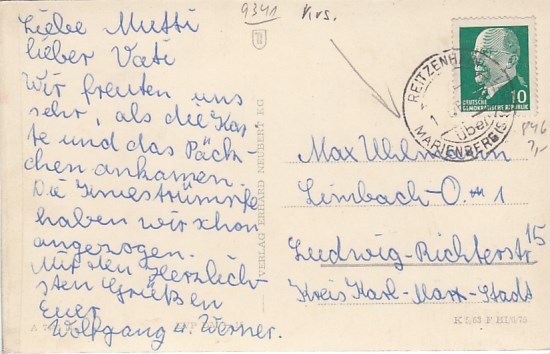 9341 Krs.
Liebe Mutti
lieber Vati
Wir freuten uns
sehr, als die Kar
te und das Päck-
chen ankamen.
Die
haben wir schon
angezogen.
Mit den Herzlich
sten Grüßen
Euer
Wolfgang u. Werner.
VERLAG ERHARD NEUBERT KG
10
DEUTSCHE
DEMOKRATISCHE REPUBLIK
über
MARIENBERG
Max Uhlmann
Limbach-O. 1
Ludwig-Richterstr 15
Kreis Karl-Marx-Stadt